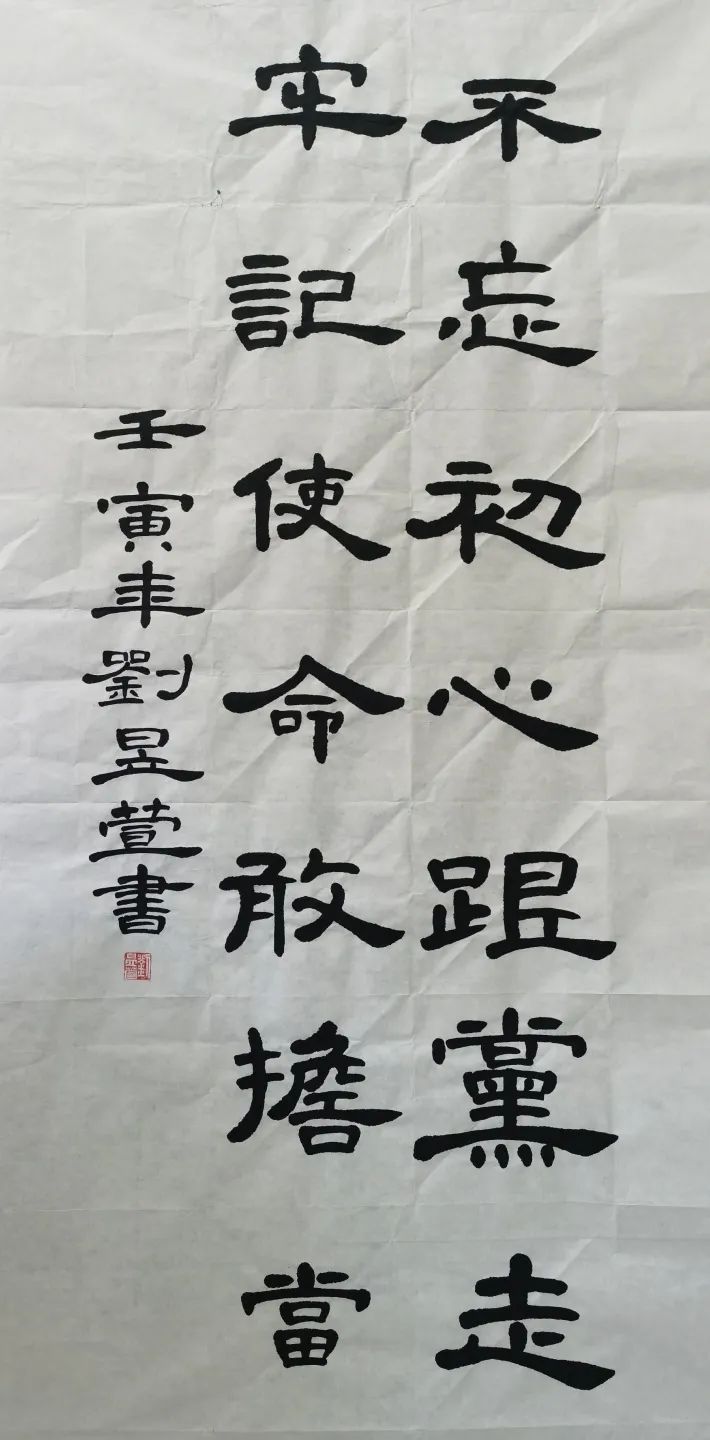 不忘初心跟黨走
牢記使命敢擔當
壬寅年劉昱萱書